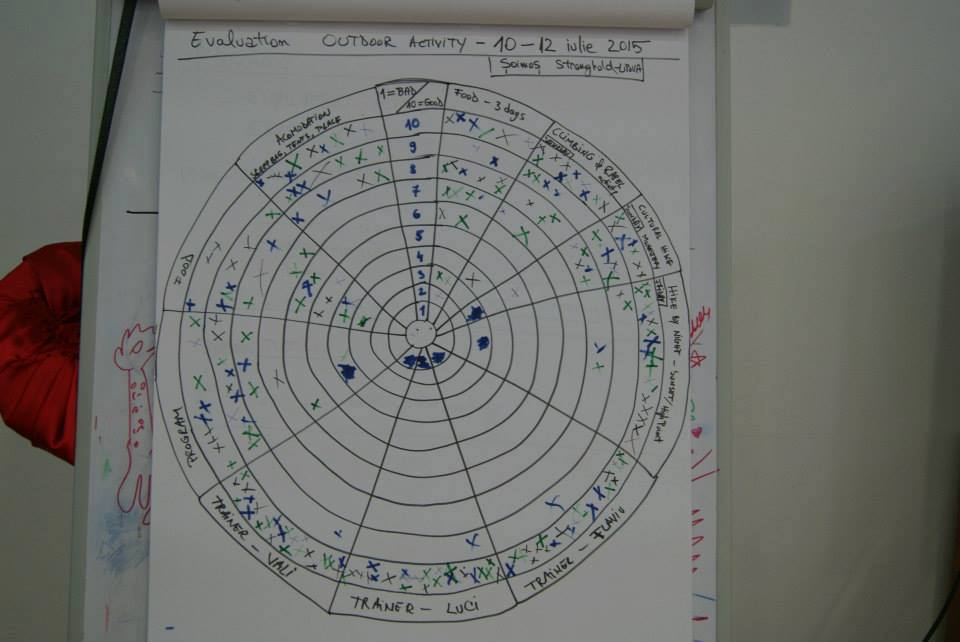 Evaluation OUTDOOR ACTIVITY - 10-12 iulie 2015
Șoimoș Stronghold-LIPOVA
1=BAD
10=GOOD
FOOD - 3 days
CLIMBING & RAPPEL
CULTURAL HIKE
HIKE BY NIGHT -
TRAINER - FLAVIU
TRAINER - LUCI
TRAINER - VALI
PROGRAM
FOOD
ACOMODATION
TENTS, PLACE
10
9
8
7
6
5
4
3
2
1